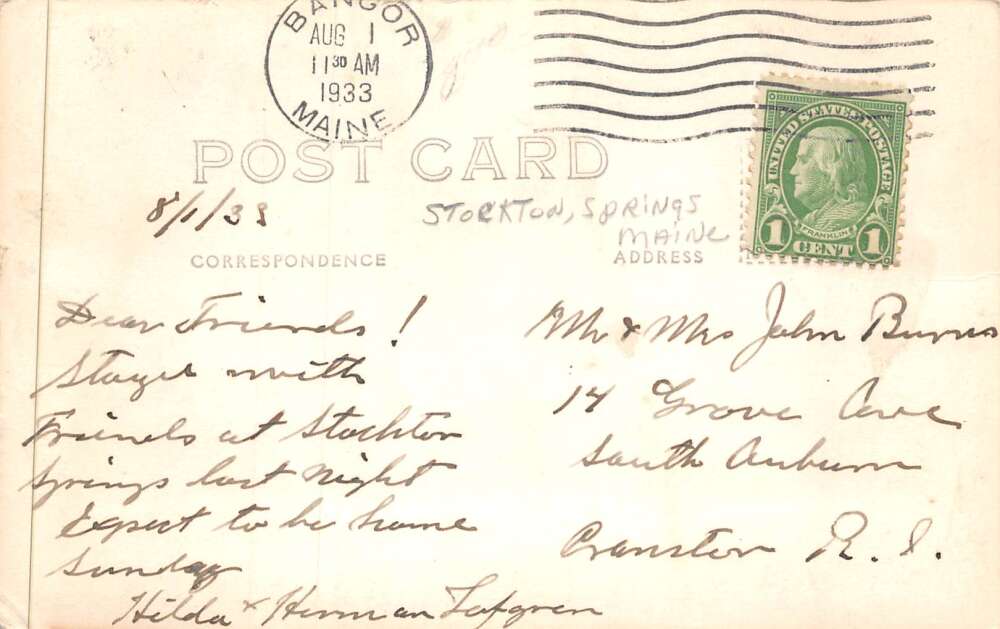 BANGOR
AUG 1
11 30 AM
1933
MAINE
UNITED STATES POSTAGE
FRANKLIN
1 CENT 1
POST CARD
8/1/33
STOCKTON, SPRINGS
MAINE
CORRESPONDENCE
ADDRESS
Dear Friends!
Stayed with
Friends at Stockton
Springs last night
Expect to be home
Sunday
Hilda & Herman Lofgren
Mr & Mrs John Burns
14 Grove Ave
South Auburn
Cranston R. I.